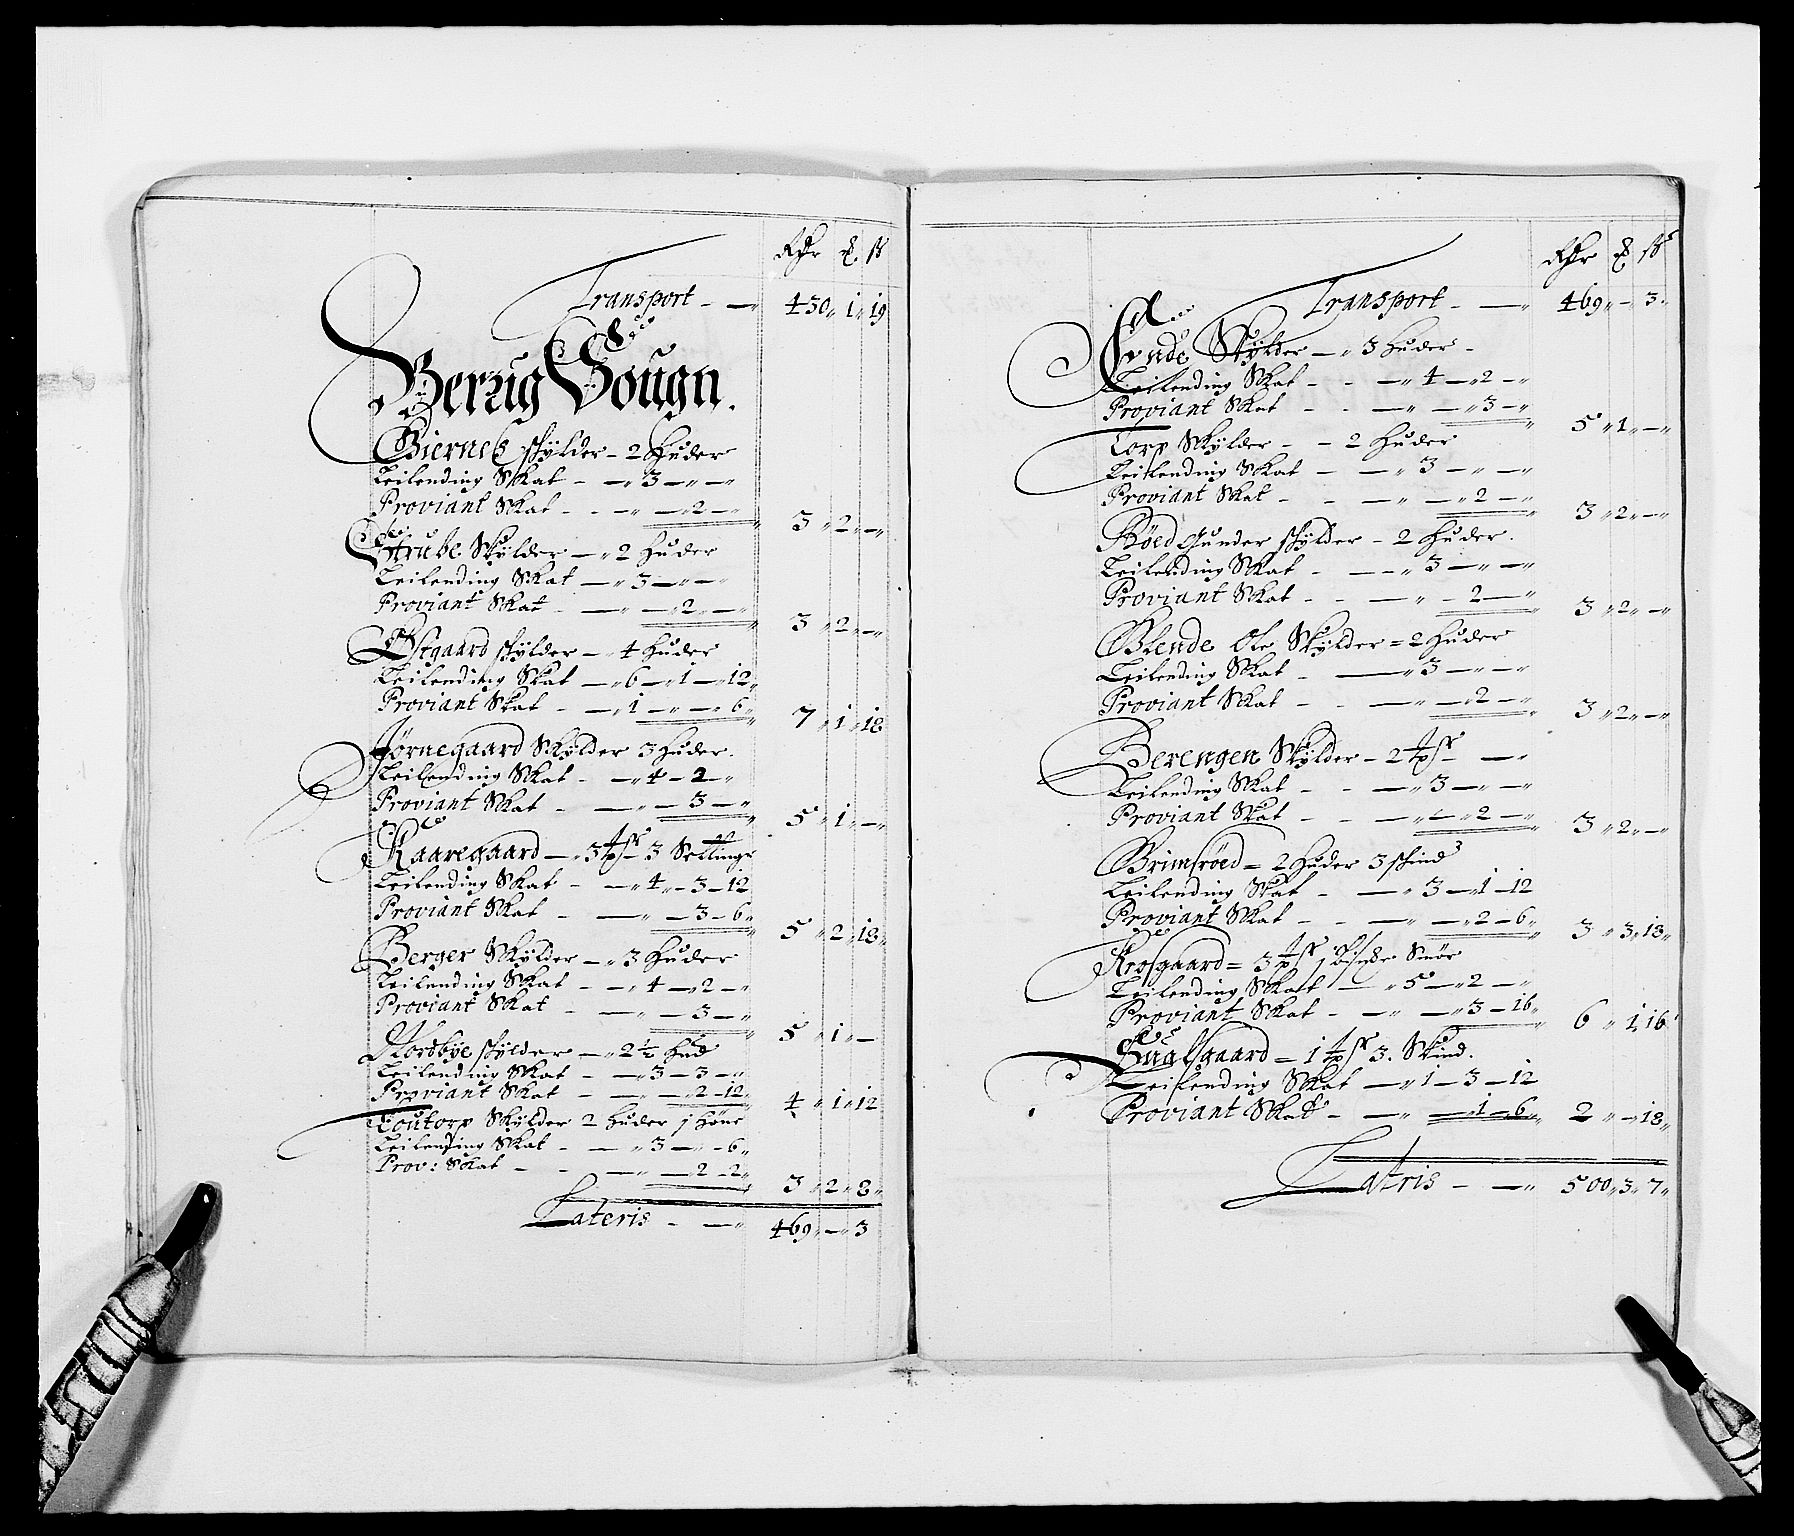 Rdr ß
Transport - — 430 „ 1 „ 19
Berrig Sougn.
Biernes skylder - 2 Huder
Leilending Skat - — „ 3 — „ — „
Proviant Skat - - — „ — „ 2 — „
3 „ 2 „ — „
Strube Skylder — „ 2 Huder
Leilending Skat — „ 3 — „ — „
Proviant Skat - — „ — „ 2 — „
3 „ 2 „ — „
Østgaard skylder — „ 4 Huder
Leilending Skat — „ 6 — „ 1 — „ 12 „
Proviant Skat - — „ 1 — „ — „ 6 „
7 „ 1 „ 18
Jørnegaard Skylder 3 Huder.
Leilending Skat - — „ 4 — 2 — „
Proviant Skat - — „ — 3 — „
5 „ 1 „ — „
Kaaregaard — „ 3 — 3 Settinger
Leilending Skat - — „ 4 „ — 3 — 12
Proviant Skat - — „ — 3 — 6 „
5 „ 2 „ 18 „
Berger Skylder — „ 3 Huder
Leilending Skat - — „ 4 — „ 2 — „
Proviant Skat - — „ — 3 — „
5 „ 1 „ —
Nordbye skylder — „ 2 ½ Hud
Leilending Skat - — „ 3 — 3 — „
Proviant Skat - — „ — „ 2 — 12 „
4 „ 1 „ 12
Toutorp Skylder 2 Huder 1 Høne
Leilending Skat - — „ 3 — „ — 6 „
Prov: Skat - - — „ — 2 — 2 „
3 „ 2 „ 8 „
Lateris - — „ 469 „ — „ 3
Rdr ß
Transport - — „ 469 „ — 3 „
Ende Skylder — „ 3 Huder -
Leilending Skat - - — „ 4 — „ 2 — „
Proviant Skat - - — „ — „ 3 — „
5 „ 1 „ — „
Torp Skylder - - 2 Huder
Leilending Skat - — „ 3 — „ — „
Proviant Skat - - — „ — „ 2 — „
3 „ 2 „ — „
Röed Gunder skylder - 2 Huder.
Leilending Skat - — „ 3 — „ — „
Proviant Skat - - — „ — 2 — „
3 „ 2 „ — „
Blende Ole Skylder = 2 Huder
Leilending Skat - — „ 3 — „ — „
Proviant Skat - - — „ — „ 2 — „
3 „ 2 „ — „
Berengen Skylder - 2 — „
Leilending Skat - - — „ 3 — „ — „
Proviant Skat - - — „ — „ 2 — „
3 „ 2 „ — „
Brimsröed = 2 Huder 3 skind
Leilending Skat - — „ 3 — „ 1 — 12
Proviant Skat - - — „ — „ 2 — 6 „
3 „ 3 „ 18 „
Krosgaard = 3 1 Smör
Leilending Skatt — „ 5 — „ 2 — „
Proviant Skat - — „ — „ 3 — 16 „
6 „ 1 „ 16
gaard = 1 3. Skind.
Leilending Skat — „ 1 — 3 — 12
Proviant Skat - — „ — „ 1 — 6 „ 2 „ — „ 18 „
Latris - — „ 500 „ 3 „ 7 „